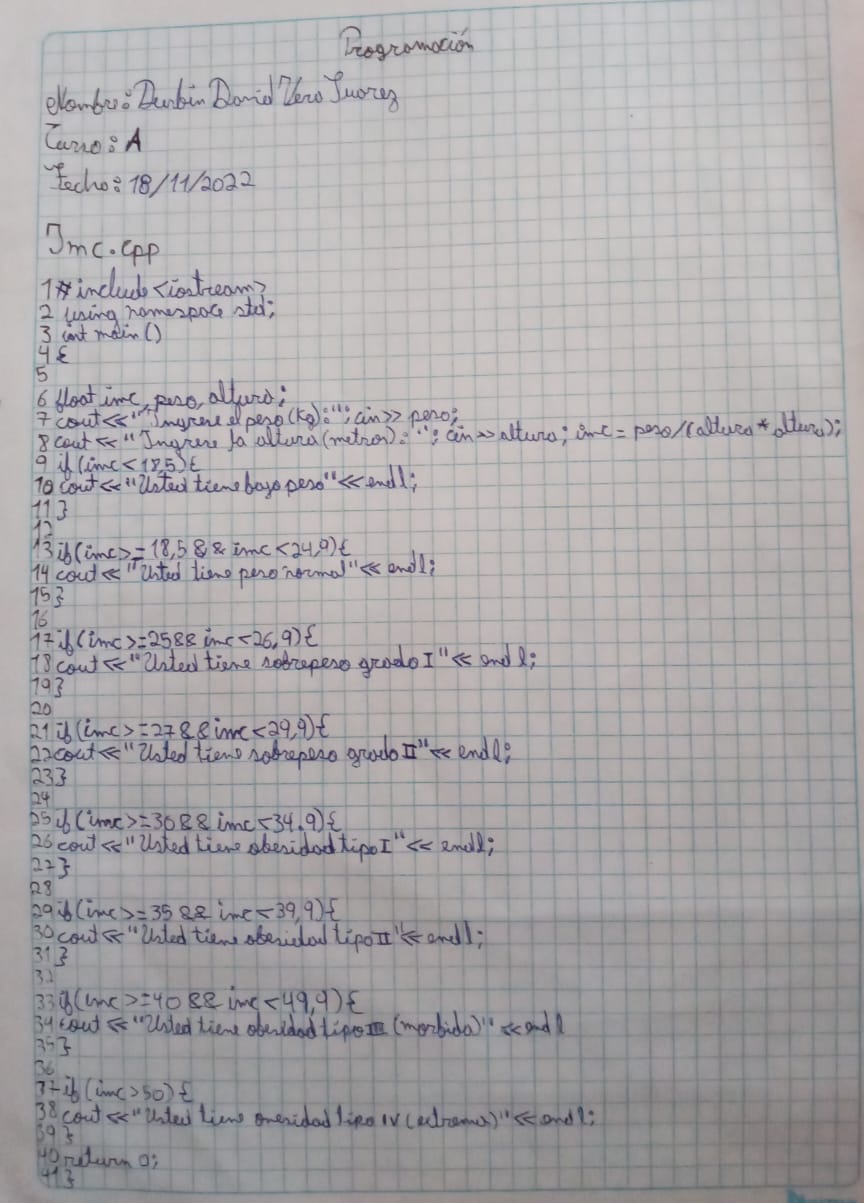 Programación
Nombre: Durbin David Vera Suarez
Curso: A
Fecha: 18/11/2022
Imc.cpp
1 #include <iostream>
2 using namespace std;
3 int main()
4 {
5
6 float imc, peso, altura;
7 cout<<"Ingrese el peso (kg):"; cin>> peso;
8 cout<< "Ingrese la altura (metros): "; cin>>altura; imc = peso/(altura * altura);
9 if (imc < 18,5){
10 cout<<"Usted tiene bajo peso"<<endl;
11 }
12
13 if(imc>=18,5 && imc<24,9){
14 cout<<"Usted tiene peso normal"<< endl;
15 }
16
17 if(imc>=25&& imc<26,9){
18 cout<<"Usted tiene sobrepeso grado I"<< endl;
19 }
20
21 if(imc>=27&&imc<29,9){
22 cout<<"Usted tiene sobrepeso grado II"<< endl;
23 }
24
25 if(imc>=30&& imc<34.9){
26 cout<<"Usted tiene obesidad tipo I"<< endl;
27 }
28
29 if(imc>=35 && imc<39,9){
30 cout<<"Usted tiene obesidad tipo II"<<endl;
31 }
32
33 if(imc>=40 && imc<49,9){
34 cout <<"Usted tiene obesidad tipo III (morbida)" <<endl
35 }
36
37 if(imc>50){
38 cout<<"Usted tiene onesidad tipo IV (extrema)"<<endl;
39 }
40 return 0;
41 }